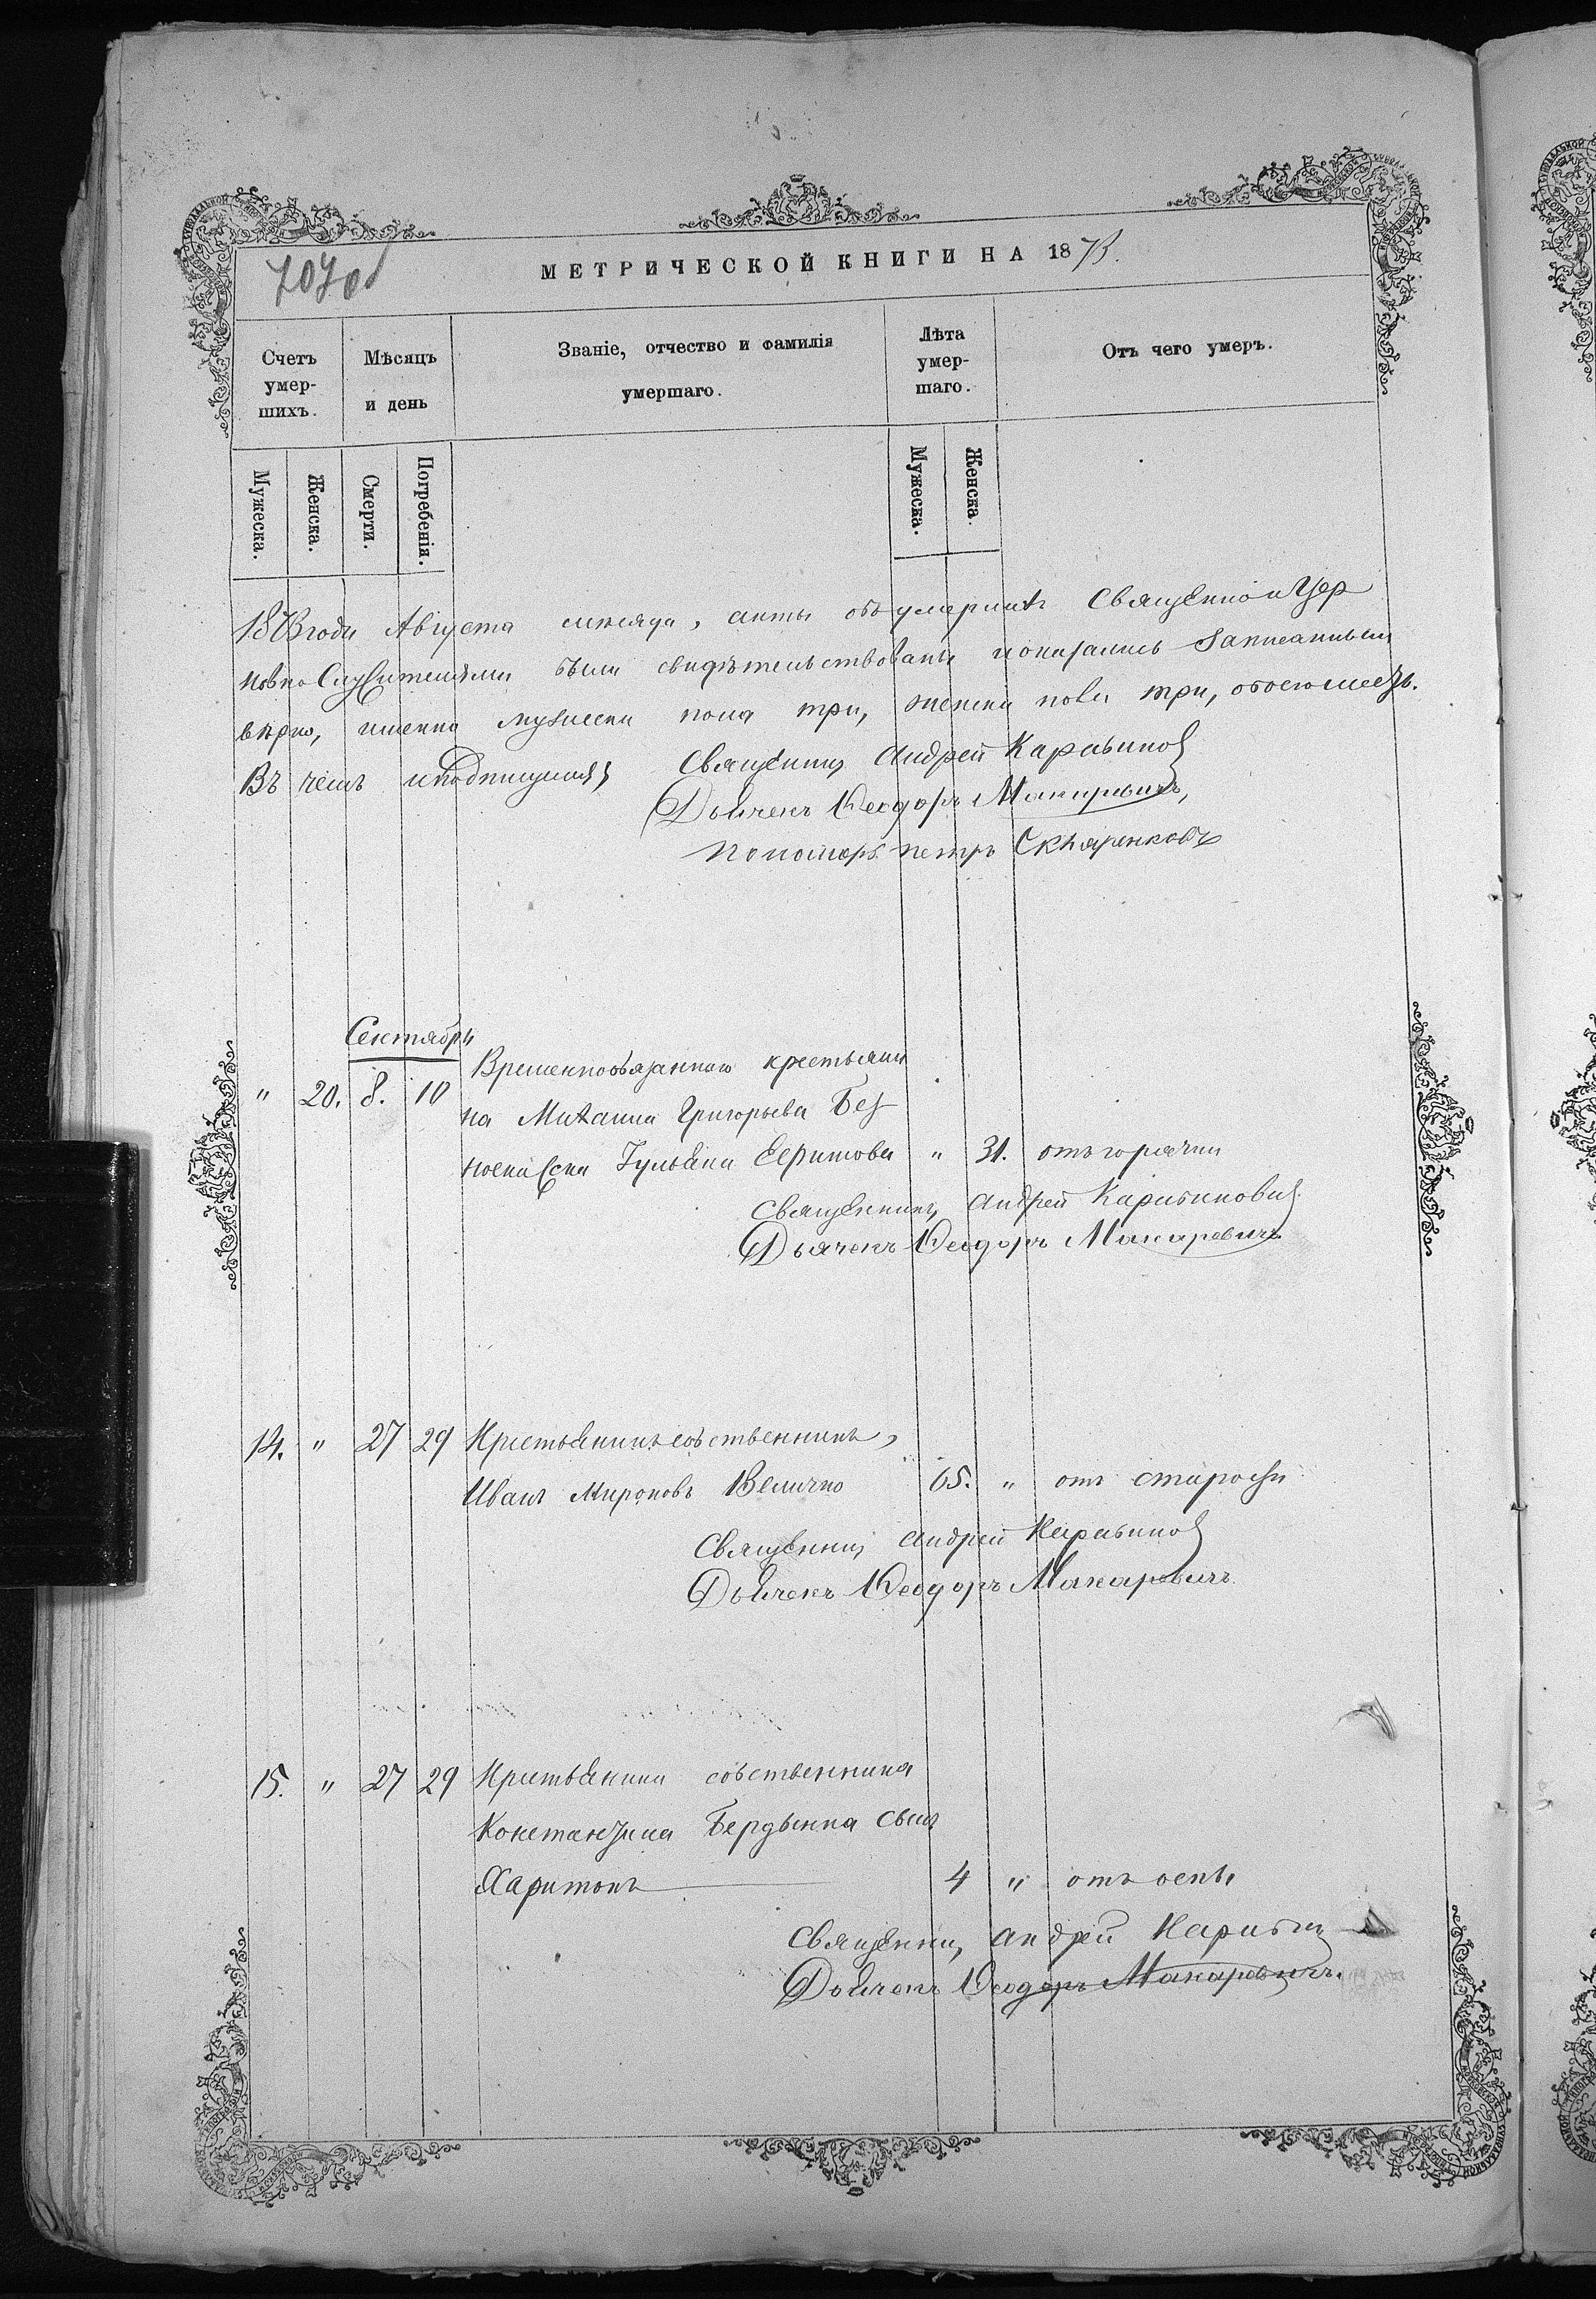 707об
МЕТРИЧЕСКОЙ КНИГИ НА 1873.
Счетъ умер-шихъ.
Мѣсяцъ и день
Званіе, отчество и фамилія умершаго.
Лѣта умер-шаго.
Отъ чего умеръ.
Мужеска. Женска. Смерти. Погребенія. Мужеска. Женска.
1873 года Августа мѣсяца, акты объ умершихъ Священно и Цер
ковно Служителями были свидѣтельствованы и оказались записанными
вѣрно, именно мужеска пола три, женска пола три, обоего шесть.
Въ чемъ и подписуемся,
Священникъ Андрей Карабинов
Дьячекъ Ѳеодоръ Макаревичъ,
Пономарь Петръ Скляренковъ
Сентябрь
" 20. 8. 10 Временнообязаннаго крестьяни
на Михаила Григорьева Без
жена Ефимова " 31. отъ горячки
Священникъ Андрей Карабинов
Дьячекъ Ѳеодоръ Макаревичъ
14. " 27 29 Крестьянинъ собственникъ,
Иванъ Мироновъ Величко 65. " отъ старости
Священникъ Андрей Карабинов
Дьячекъ Ѳеодоръ Макаревичъ
15. " 27 29 Крестьянина собственника
Константина сынъ
Харитонъ 4 " отъ оспы
Священникъ Андрей Карабин
Дьячекъ Ѳеодоръ Макаревичъ.